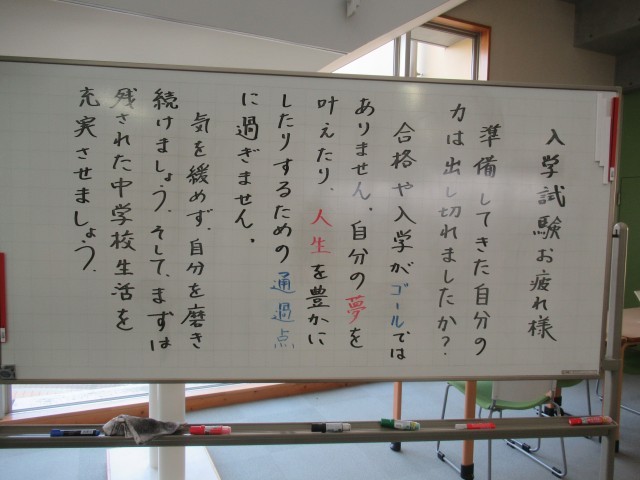 入学試験お疲れ様
準備してきた自分の
力は出し切れましたか?
合格や入学がゴールでは
ありません。自分の夢を
叶えたり、人生を豊かに
したりするための通過点
に過ぎません。
気を緩めず、自分を磨き
続けましょう。そして、まずは
残された中学校生活を
充実させましょう。